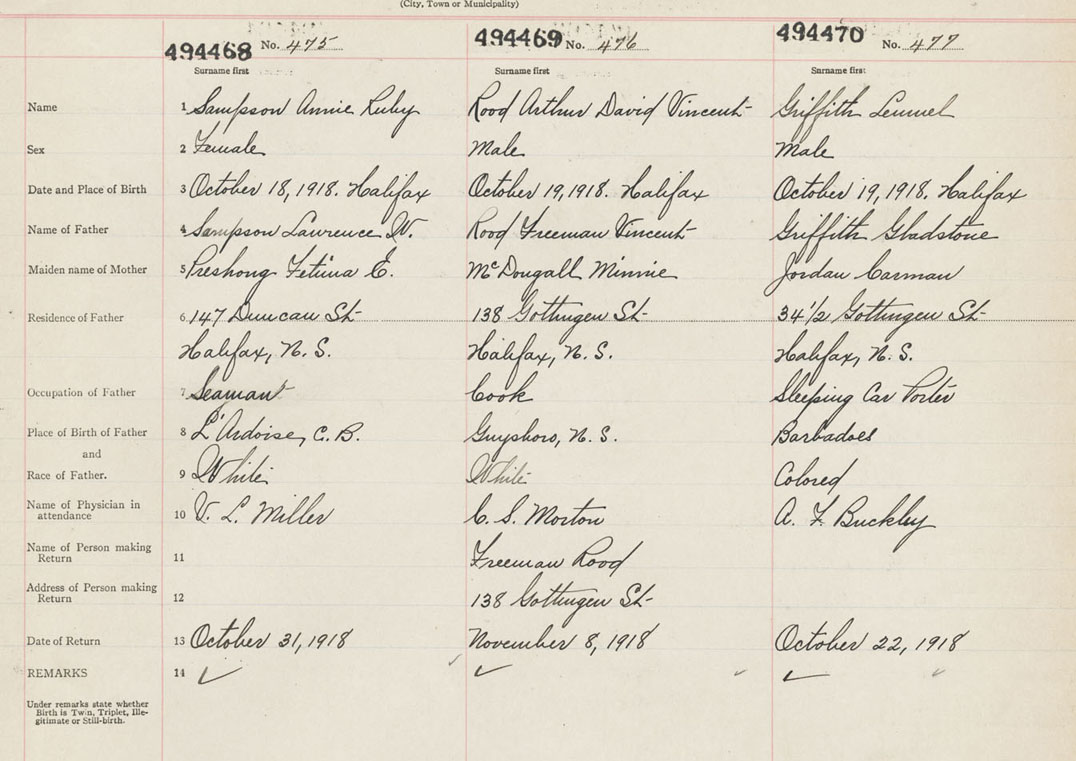 (City, Town or Municipality)
494468 No. 475 494469 No. 476 494470 No. 477
Surname first Surname first Surname first
Name 1 Sampson Annie Ruby Rood Arthur David Vincent Griffith Lemuel
Sex 2 Female Male Male
Date and Place of Birth 3 October 18, 1918. Halifax October 19, 1918. Halifax October 19, 1918. Halifax
Name of Father 4 Sampson Lawrence W. Rood Freeman Vincent Griffith Gladstone
Maiden name of Mother 5 E. McDougall Minnie Jordan Carman
Residence of Father 6 147 Duncan St 138 Gottingen St 34 1/2 Gottingen St
Halifax, N. S. Halifax, N. S. Halifax, N. S.
Occupation of Father 7 Seaman Cook Sleeping Car Porter
Place of Birth of Father 8 L'Ardoise, C. B. Guysboro, N. S. Barbadoes
and
Race of Father. 9 White White Colored
Name of Physician in
attendance 10 V. L. Miller C. S. Morton A. F. Buckley
Name of Person making
Return 11 Freeman Rood
Address of Person making
Return 12 138 Gottingen St
Date of Return 13 October 31, 1918 November 8, 1918 October 22, 1918
REMARKS 14 ✓ ✓ ✓
Under remarks state whether
Birth is Twin, Triplet, Ille-
gitimate or Still-birth.